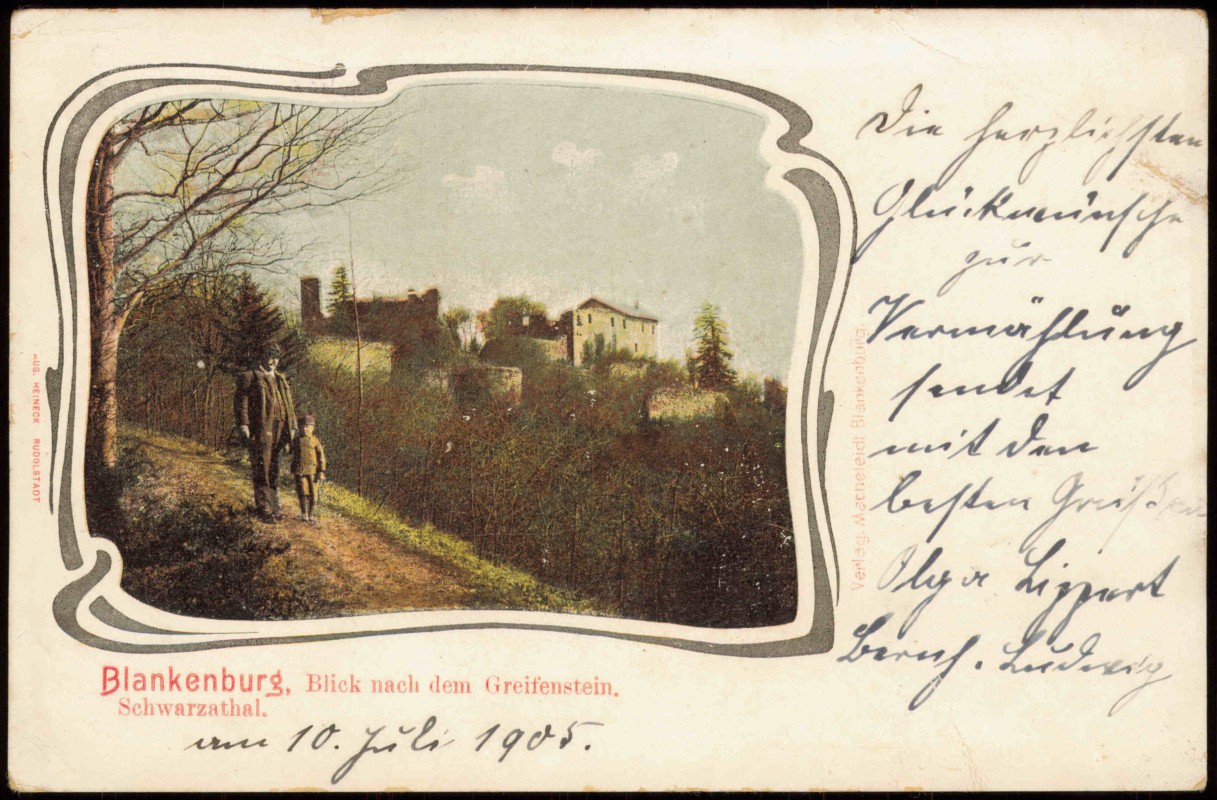 Die herzlichsten
Glückwünsche
zur
Vermählung
sendet
mit den
besten Grüßen
Olga Lippert
Bernh. Ludwig
Verlag: Macheleidt Blankenburg.
AUG. HEINECK RUDOLSTADT
Blankenburg, Blick nach dem Greifenstein.
Schwarzathal.
am 10. Juli 1905.